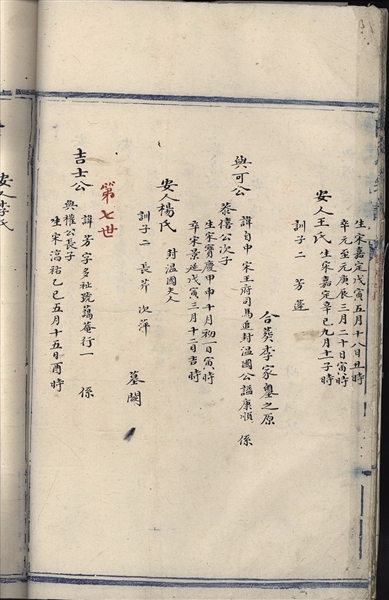 生宋嘉定戊寅五月十八日丑時
卒元至元庚辰三月二十日寅時
安人王氏 生宋嘉定辛巳九月十一子時
訓子二 芳 蓬
合葬李家鑾之原
與可公 諱自中 宋王府司馬追封溫國公謚康順 係
恭僖公次子
生宋寶慶甲申十月初一日寅時
卒宋景延戊寅三月十二日吉時
安人楊氏 封溫國夫人
訓子二 長芹 次萍
墓闕
第七世
吉士公 諱芳字多祉號藹菴行一 係
與權公長子
生宋淳祐乙巳五月十五日酉時
安人李氏